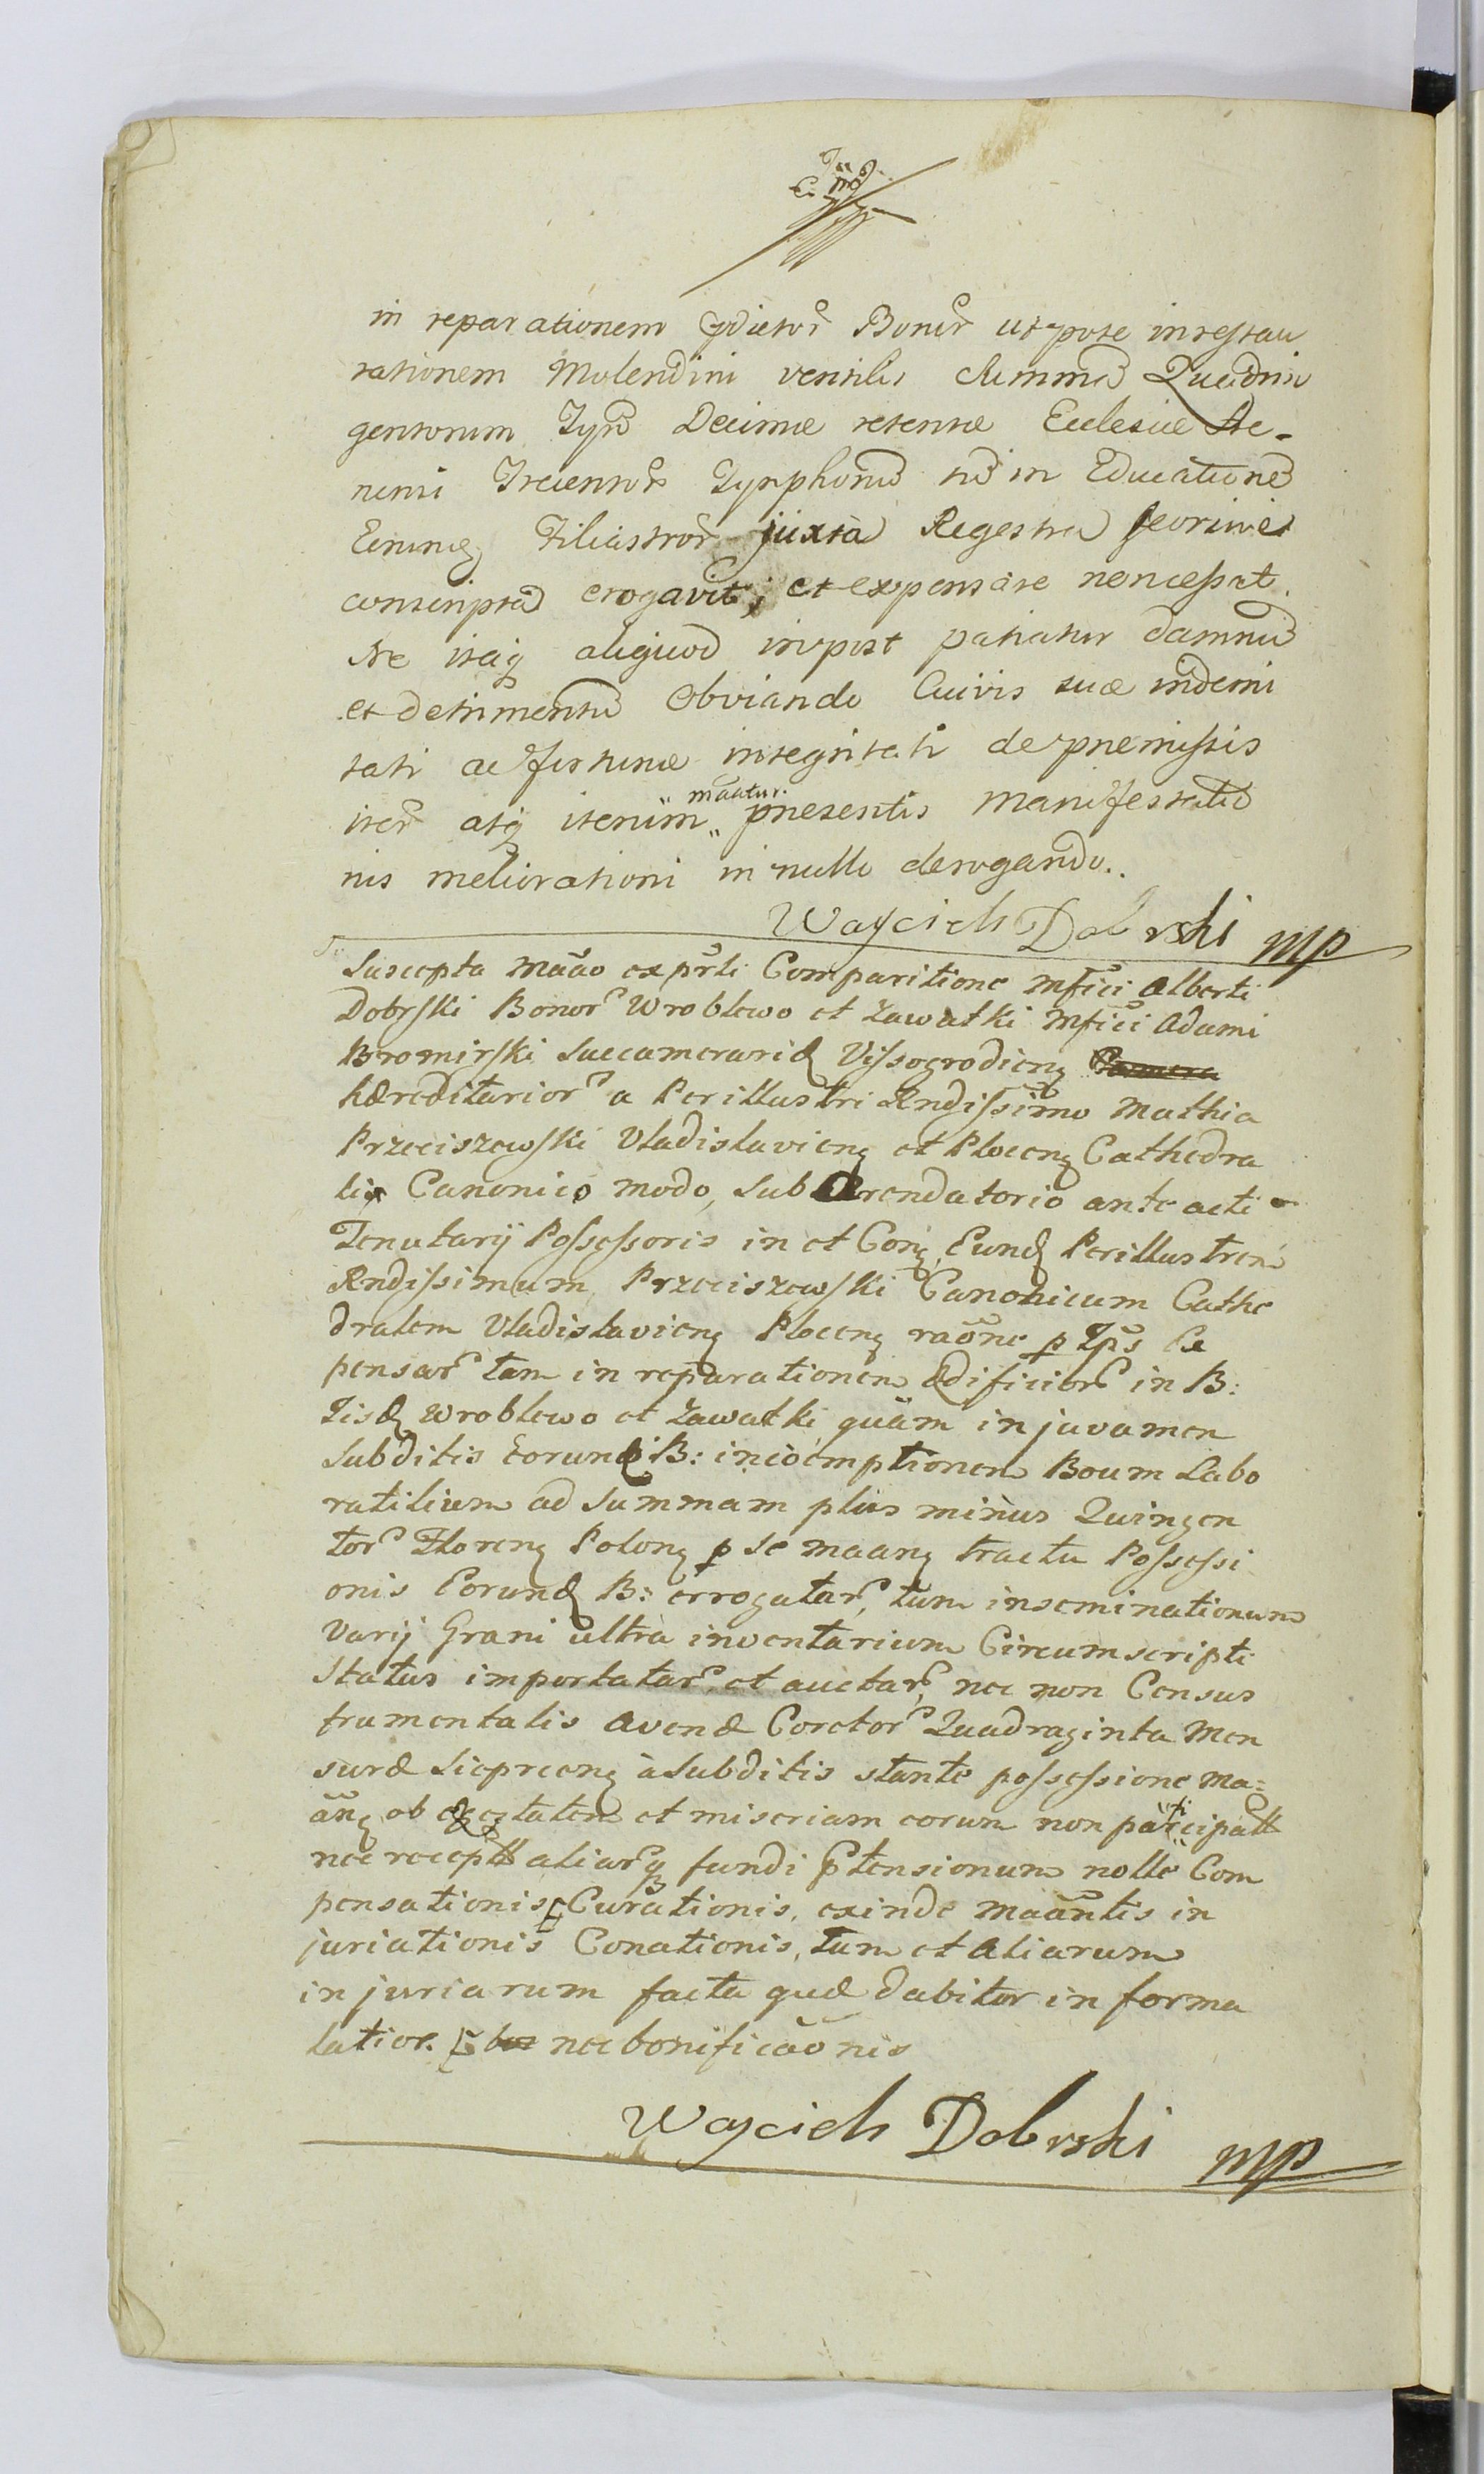 in reparationem pdictor Bonor utpote in restau
rationem Molendini ventilis Summã Quadrin
gentorum Tynfõ Decimæ retentæ Ecclesiæ Ste-
nimi Trecentor Tynphonũ tũ in Educationẽ
Filiastror juxta Regestra seorsive
conscripta erogavit; et expensare non cessat.
Ne itaq aliquod inpost patiatur damnũ
et detrimentũ Obviando Cuivis suæ indemni
tati ac fortunæ integritati de præmissis
iterũ atq iterum maatur. presentis Manifestatio
nis meliorationi in nullo derogando..
Woyciech Dobrski mp
Suscepta mãão ex prti Comparitione Mfici Alberti
Dobrski Bonor Wroblewo et Zawatki Mfici Adami
Bromirski Succamerarid Vissogrodieng
hæreditarior a Perillustri Rndissimo Mathia
Przeciszewski Vladislavieng et Ploceng Cathedra
lis Canonico modo, sub Arendatorio ante acti
Tenutarij Possessoris in et Corg Eund Perillustrem
Rndissimum Przeciszewski Canonicum Cathe
dralem Vladislavieng Ploceng raõne p Tps Ex
pensar tam in reparationem Ædificior in B:
Iisd Wroblewo et Zawatki quàm in juvamen
Subditis Eorund B: in coemptionem Boum Labo
ratilium ad summam plus minus Quingen
tor Floreng Polong p se maang tractu Possessi
onis Eorund B: errogatar, tum inseminationum
Varij Grani ultra inventarium Circumscripti
Status importatar et auctar, nec non Census
frumentalis Avenæ Coretor Quadraginta Men
suræ Sieprceng à Subditis stante possessione ma=
ãng ob egtatem et miseriam eorum non participatt
nec receptt aliarq fundi Ptensionum nolle Com
pensationis Curationis, exinde maãntis in
juriationis Conationis, tum et Aliarum
injuriarum facta quæ dabitur in forma
latior. nec bonificãonis
Woyciech Dobrski mp